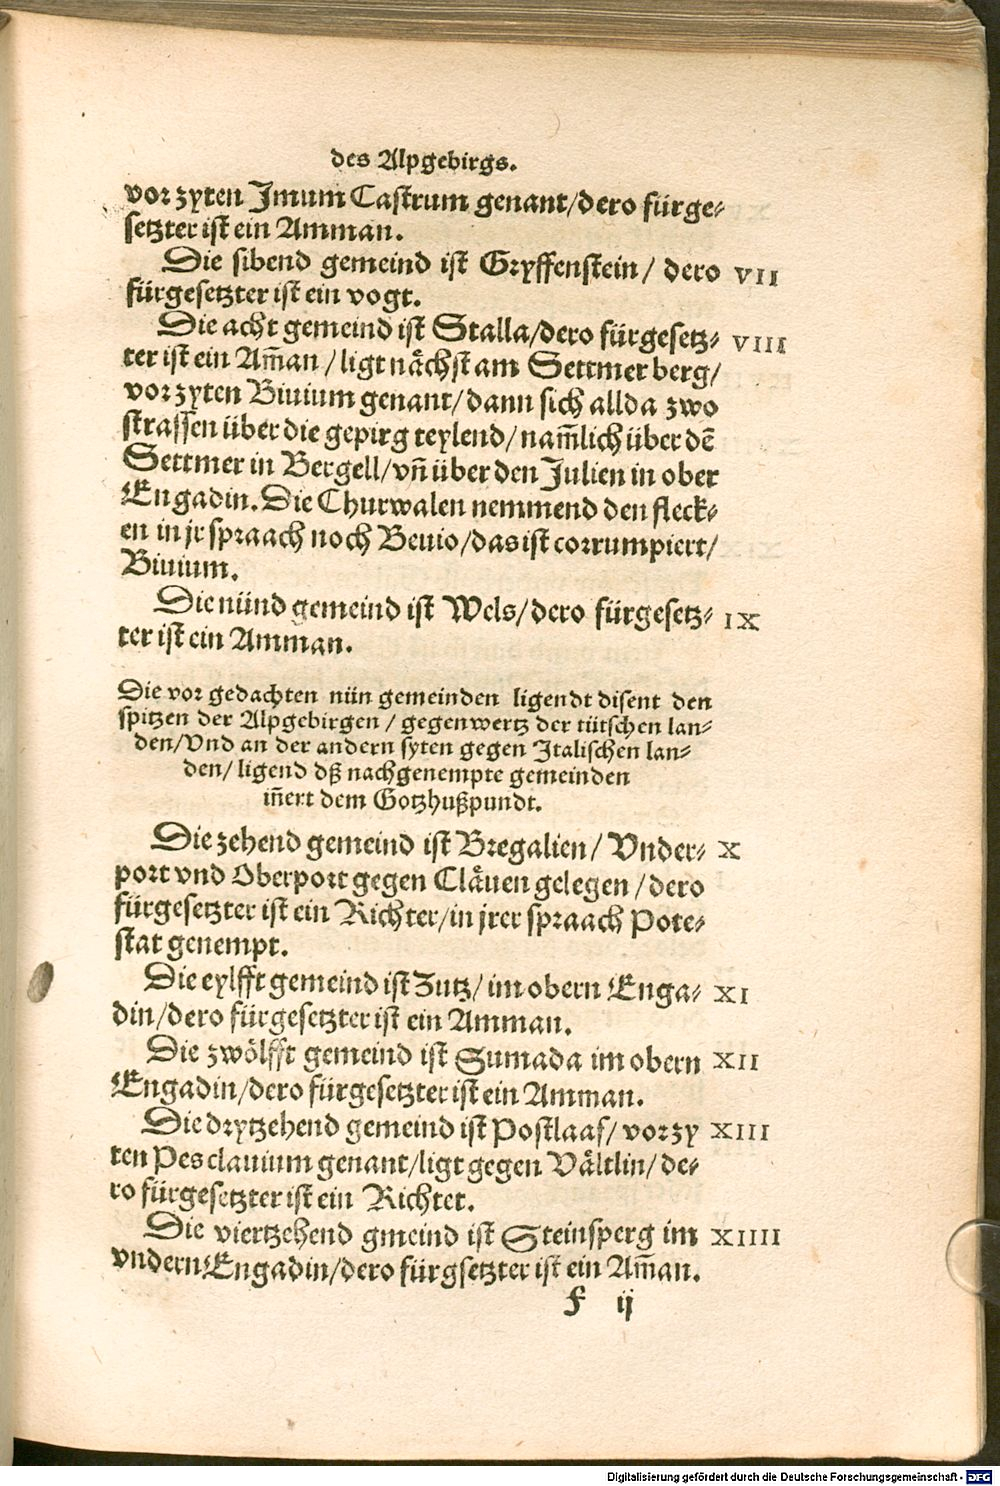 des Alpgebirgs.
vor zyten Imum Castrum genant/dero fürge-
setzter ist ein Amman.
Die sibend gemeind ist Gryffenstein/ dero VII
fürgesetzter ist ein vogt.
Die acht gemeind ist Stalla/dero fürgesetz- VIII
ter ist ein Am̃an/ligt nächst am Settmer berg/
vor zyten Biuium genant/dann sich allda zwo
strassen über die gepirg teylend/nam̃lich über dẽ
Settmer in Bergell/vñ über den Julien in ober
Engadin. Die Churwalen nemmend den fleck-
en in jr spraach noch Beuio/das ist corrumpiert/
Biuium.
Die nünd gemeind ist Wels/dero fürgesetz- IX
ter ist ein Amman.
Die vor gedachten nün gemeinden ligendt disent den
spitzen der Alpgebirgen/gegenwertz der tütschen lan-
den/Vnd an der andern syten gegen Italischen lan-
den/ligend dß nachgenempte gemeinden
iñert dem Gotzhußpundt.
Die zehend gemeind ist Bregalien/ Vnder- X
port vnd Oberport gegen Cläuen gelegen/dero
fürgesetzter ist ein Richter/in jrer spraach Pote-
stat genempt.
Die eylfft gemeind ist Zutz/im obern Enga- XI
din/dero fürgesetzter ist ein Amman.
Die zwölfft gemeind ist Sumada im obern XII
Engadin/dero fürgesetzter ist ein Amman.
Die drytzehend gemeind ist Postlaaf/ vor zy XIII
ten Pesclauium genant/ligt gegen Vältlin/de-
ro fürgesetzter ist ein Richter.
Die viertzehend gmeind ist Steinsperg im XIIII
vndern Engadin/dero fürgsetzter ist ein Am̃an.
f ij
Digitalisierung gefördert durch die Deutsche Forschungsgemeinschaft - DFG